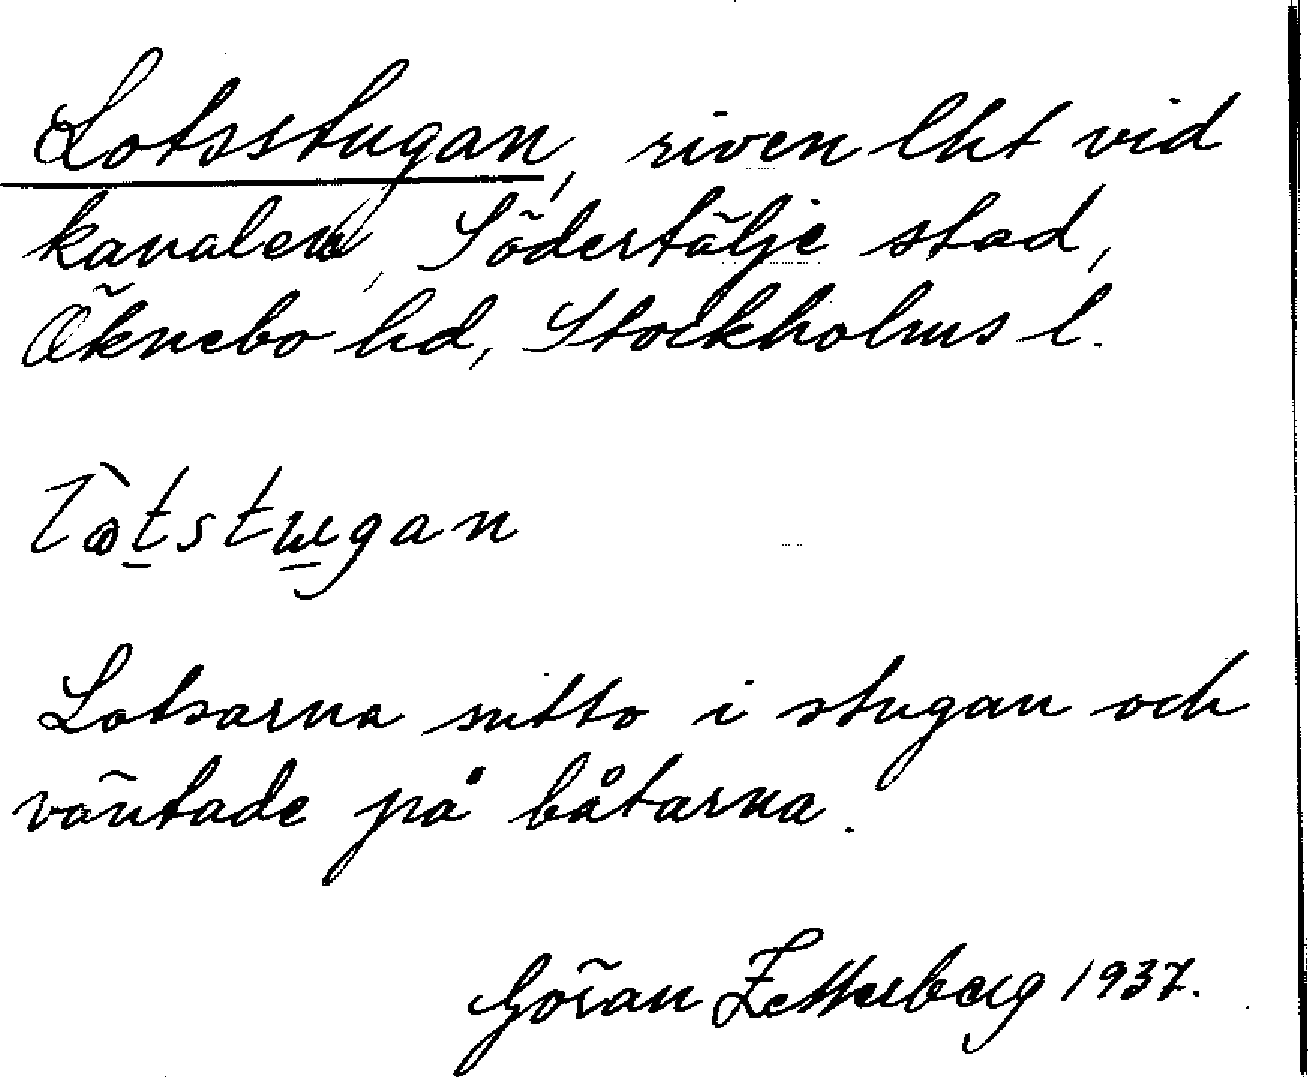 Lotsstugan, riven lht vid
kanalen, Södertälje stad,
Öknebo hd, Stockholms l.
Lotsarna sutto i stugan och
väntade på båtarna.
Göran Zetterberg 1937.